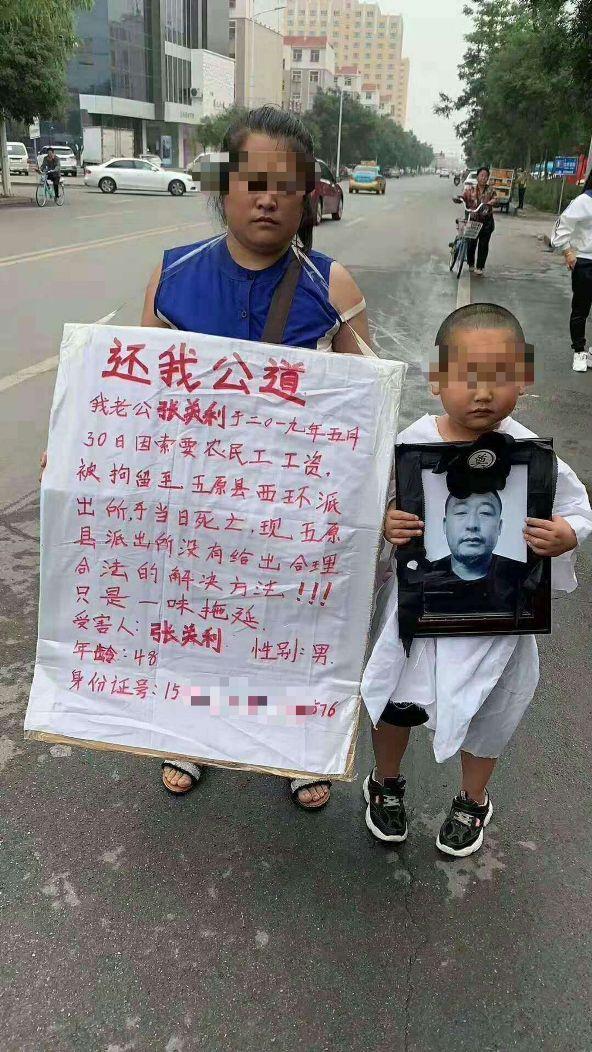 还我公道
我老公张美利于二〇一九年五月
30日因索要农民工工资,
被拘留至五原县西环派
出所,于当日死亡,现五原
县派出所没有给出合理
合法的解决方法!!!
只是一味拖延.
受害人:张美利. 性别:男.
年龄:48
身份证号:15 576
奠